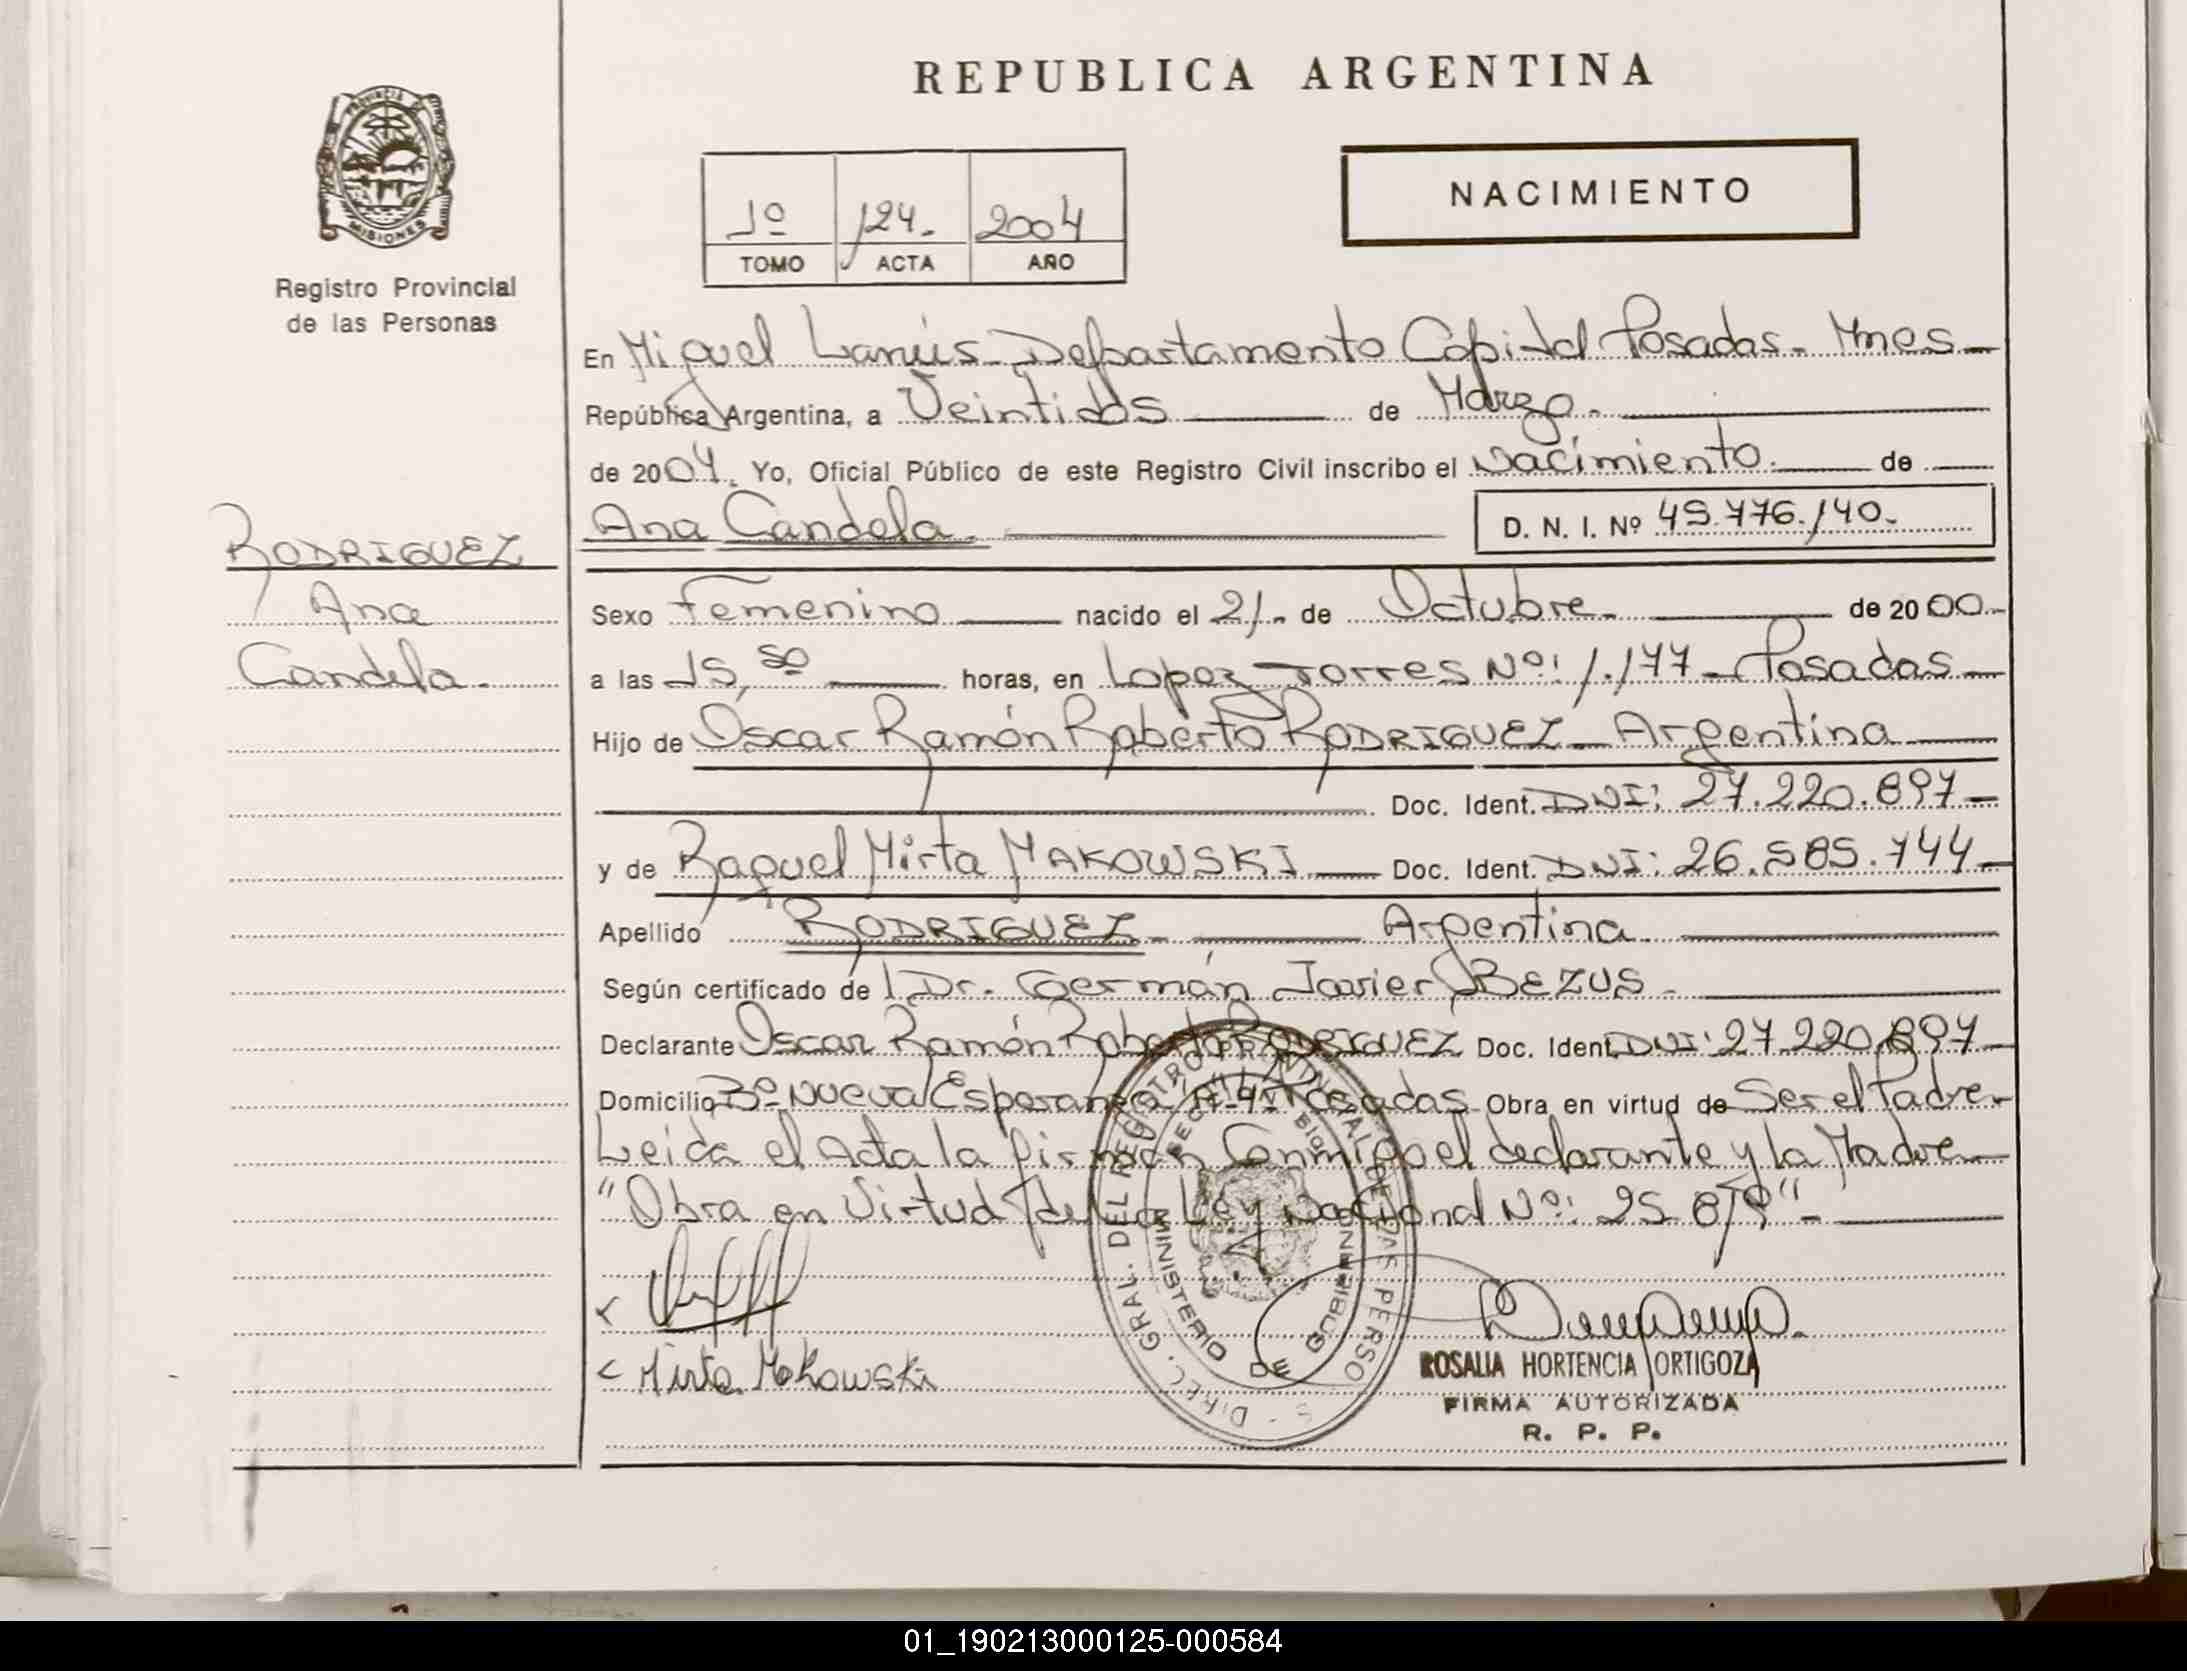 REPUBLICA ARGENTINA
PROVINCIA DE
MISIONES
Registro Provincial
de las Personas
NACIMIENTO
1º 124. 2004
TOMO ACTA AÑO
En Miguel Lanús - Departamento Capital Posadas - Mnes
República Argentina, a Veintidós de Marzo.
de 2004. Yo, Oficial Público de este Registro Civil inscribo el Nacimiento. de
Ana Candela. D. N. I. Nº 45.776.140.
RODRIGUEZ
Ana
Candela.
Sexo Femenino nacido el 21. de Octubre. de 2000.
a las 15,50 horas, en Lopez Torres Nº: 1.177 - Posadas
Hijo de Oscar Ramón Roberto RODRIGUEZ - Argentina
Doc. Ident. DNI: 27.220.897
y de Raquel Mirta MAKOWSKI Doc. Ident. DNI: 26.585.744
Apellido RODRIGUEZ - Argentina.
Según certificado de l Dr. Germán Javier BEZUS -
Declarante Oscar Ramón Roberto RODRIGUEZ Doc. Ident. DNI: 27.220.897
Domicilio Bº Nueva Esperanza Posadas - Obra en virtud de Ser el Padre -
Leida el Acta la firman Conmigo el declarante y la Madre
"Obra en Virtud de la Ley Nacional Nº: 25.819" -
DIREC. GRAL. DEL REGISTRO PROVINCIAL DE LAS PERSONAS
MINISTERIO DE GOBIERNO
Mirta Makowski
ROSALIA HORTENCIA ORTIGOZA
FIRMA AUTORIZADA
R. P. P.
01_190213000125-000584